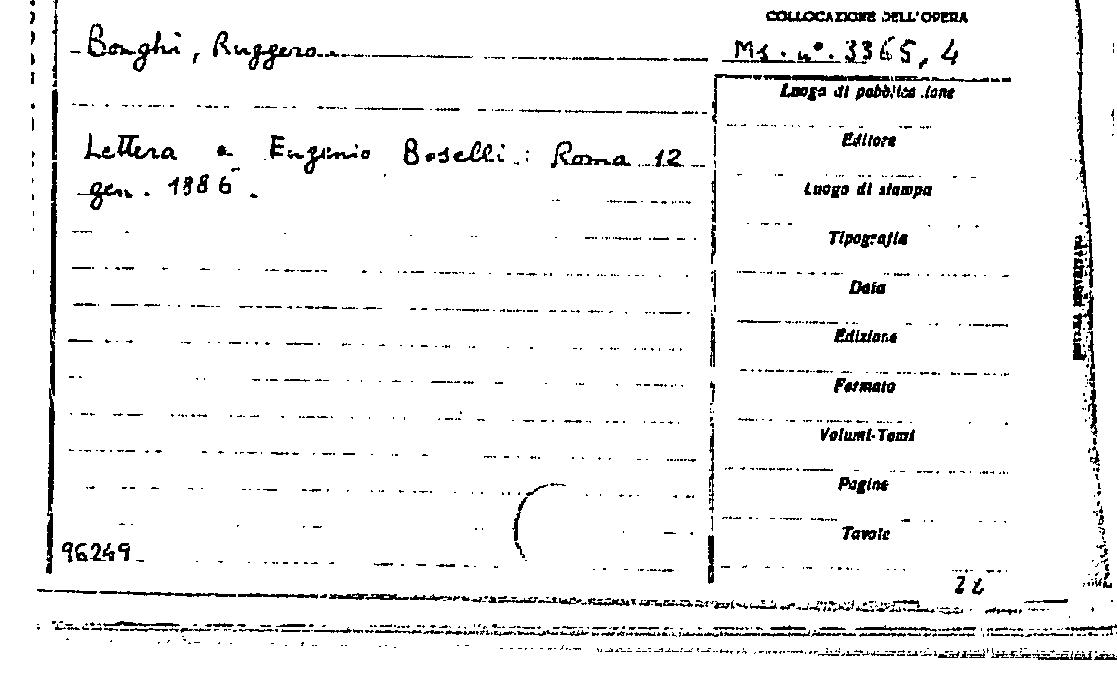 COLLOCAZIONE DELL'OPERA
Bonghi, Ruggero
Ms. n°. 3365, 4
Lettera a Eugenio Boselli: Roma 12
gen. 1886.
Luogo di pubblicazione
Editore
Luogo di stampa
Tipografia
Data
Edizione
Formato
Volumi-Tomi
Pagine
Tavole
96249